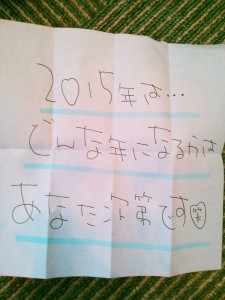 2015年は…
どんな年になるかは
あなた次第です♡笑